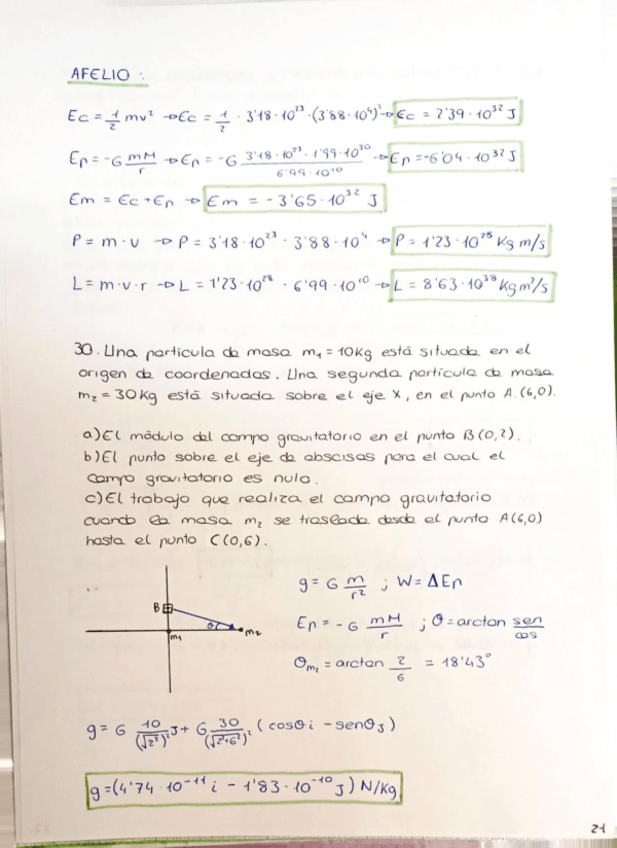 AFELIO :
Ec = 1/2 mv² → Ec = 1/2 · 3'18 · 10²³ · (3'88 · 10⁴)² → Ec = 2'39 · 10³² J
Ep = -G mM/r → Ep = -G 3'18 · 10²³ · 1'99 · 10³⁰ / 6'99 · 10¹⁰ → Ep = -6'04 · 10³² J
Em = Ec + Ep → Em = -3'65 · 10³² J
P = m · v → P = 3'18 · 10²³ · 3'88 · 10⁴ → P = 1'23 · 10²⁸ Kg m/s
L = m · v · r → L = 1'23 · 10²⁸ · 6'99 · 10¹⁰ → L = 8'63 · 10³⁸ Kg m²/s
30. Una particula de masa m₁ = 10Kg está situada en el
origen de coordenadas. Una segunda partícula de masa
m₂ = 30Kg está situada sobre el eje X, en el punto A (6,0).
a) El módulo del campo gravitatorio en el punto B (0,2).
b) El punto sobre el eje de abscisas para el cual el
campo gravitatorio es nulo.
c) El trabajo que realiza el campo gravitatorio
cuando la masa m₂ se traslada desde el punto A(6,0)
hasta el punto C(0,6).
g = G m/r² ; W = ΔEp
B
Ep = -G mM/r ; θ = arctan sen/cos
θ
m₁
m₂
θm₂ = arctan 2/6 = 18'43°
g = G 10/(√2²)² J + G 30/(√2²+6²)² (cosθi - senθJ)
g = (4'74 · 10⁻¹¹ i - 1'83 · 10⁻¹⁰ J) N/Kg
21